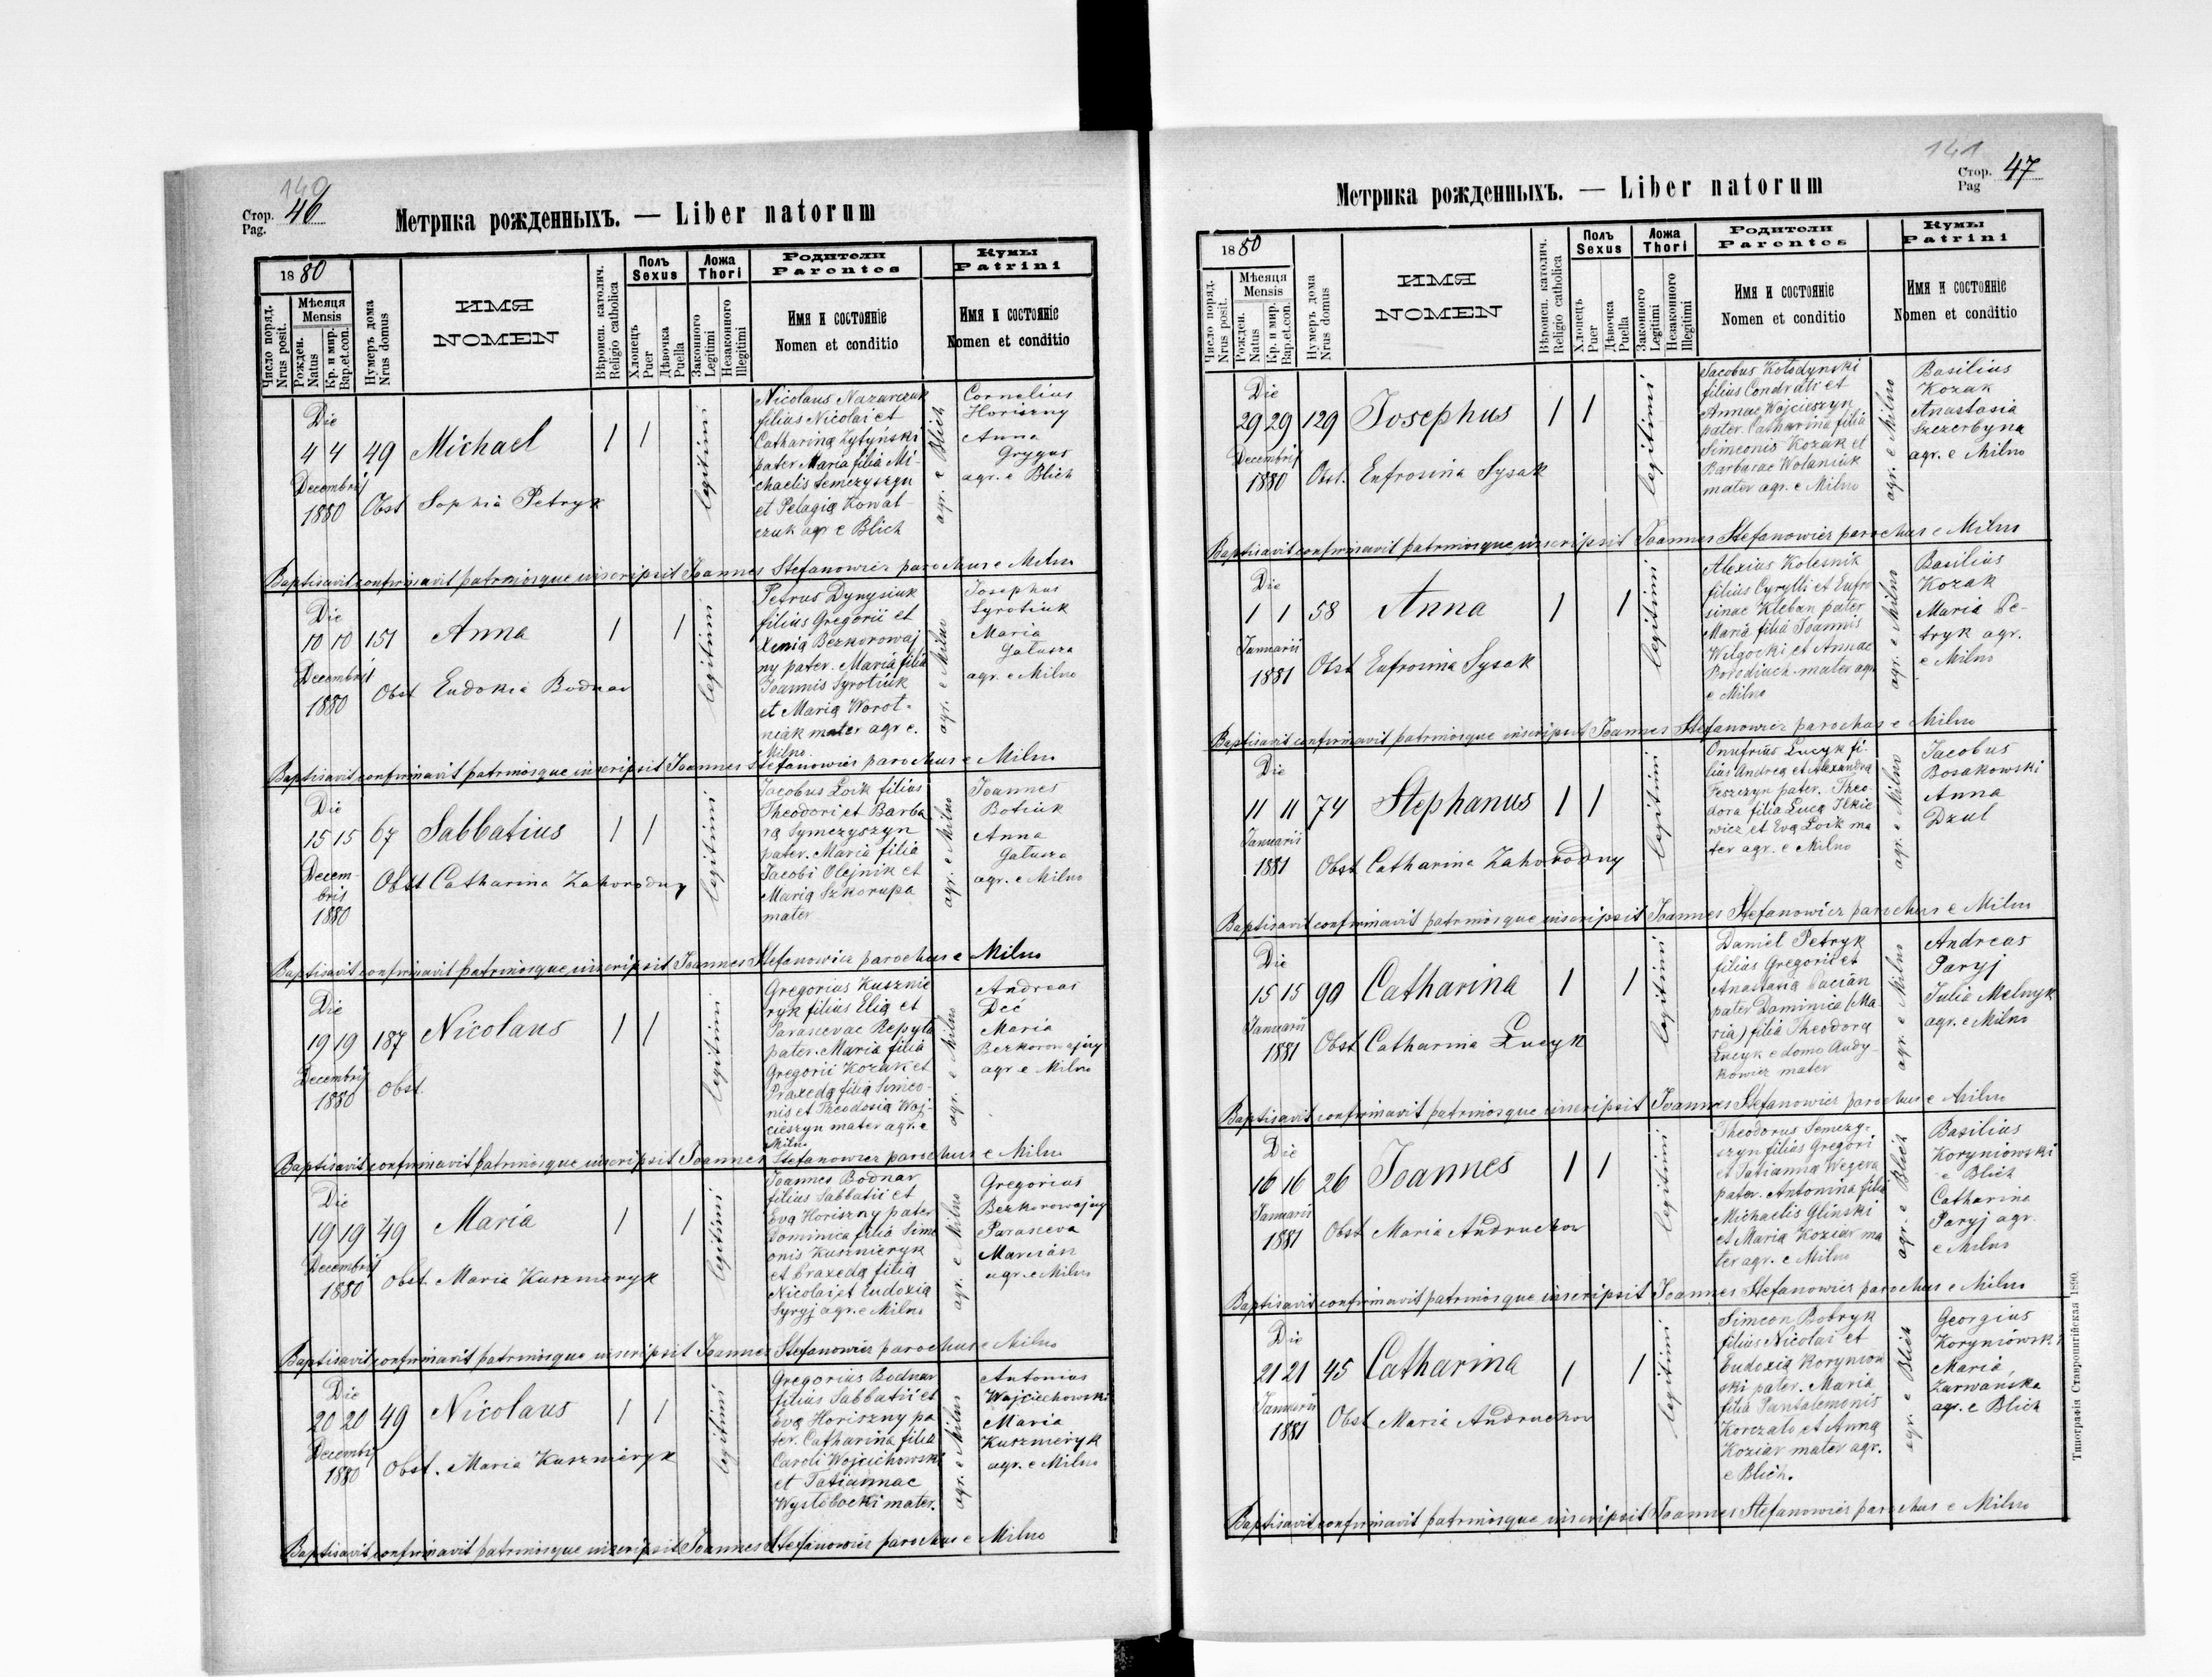 140
Стор. 46
Pag.
Метрика рожденныхъ. — Liber natorum
1880
Число поряд.
Nrus posit.
Мѣсяця
Mensis
Рожден.
Natus
Кр. и мир.
Bap.et.con.
Нумеръ дома
Nrus domus
ИМЯ
NOMEN
Вѣроисп. католич.
Religio catholica
Полъ
Sexus
Хлопецъ
Puer
Дѣвочка
Puella
Ложа
Thori
Законного
Legitimi
Незаконного
Illegitimi
Родители
Parentes
Имя и состояніе
Nomen et conditio
Кумы
Patrini
Имя и состояніе
Nomen et conditio
Die
4 4 49 Michael 1 1
Decembrij
1880
Obst Sophia Petryk
legitimi
Nicolaus Nazarczuk
filius Nicolai et
Catharina Zytyński
pater Maria filia Mi-
chaelis Semczyszyn
et Pelagia Kowal-
czuk agr e Blich
agr. e Blich
Cornelius
Horiszny
Anna
Grygus
agr. e Blich
Baptisavit confirmavit patrinosque inscripsit Joannes Stefanowicz parochus e Milno
Die
10 10 151 Anna 1 1
Decembrij
1880
Obst Eudokia Bodnar
legitimi
Petrus Dynysiuk
filius Gregorii et
Xenia Bezkorowaj
ny pater. Maria filia
Joannis Syrotiuk
et Maria Worot-
niak mater agr e.
Milno.
agr. e Milno
Josephus
Syrotiuk
Maria
Gałusza
agr. e Milno
Baptisavit confirmavit patrinosque inscripsit Joannes Stefanowicz parochus e Milno
Die
15 15 67 Sabbatius 1 1
Decem-
bris
1880
Obst Catharina Zahorodny
legitimi
Jacobus Łoik filius
Theodori et Barba
ra Symczyszyn
pater. Maria filia
Jacobi Olejnik et
Maria Szkorupa
mater
agr. e Milno
Joannes
Botiuk
Anna
Gałusza
agr. e Milno
Baptisavit confirmavit patrinosque inscripsit Joannes Stefanowicz parochus e Milno
Die
19 19 187 Nicolaus 1 1
Decembrij
1880
Obst.
legitimi
Gregorius Kusznie
ryk filius Elia et
Parascevae Repyta
pater. Maria filia
Gregorii Kozak et
Praxeda filia Simeo-
nis et Theodosia Woj-
cieszyn mater agr. e
Milno
agr. e Milno
Andreas
Dec
Maria
Bezkorowajny
agr e Milno
Baptisavit confirmavit patrinosque inscripsit Joannes Stefanowicz parochus e Milno
Die
19 19 49 Maria 1 1
Decembrij
1880
Obst. Maria Kuszmeryk
legitimi
Joannes Bodnar
filius Sabbatii et
Eva Horiszny pater
Dominica filia Sime
onis Kuszmieryk
et Praxeda filia
Nicolai et Eudoxia
Syryj agr. e Milno
agr. e Milno
Gregorius
Bezkorowajny
Parasceva
Marcian
agr. e Milno
Baptisavit confirmavit patrinosque inscripsit Joannes Stefanowicz parochus e Milno
Die
20 20 49 Nicolaus 1 1
Decembrij
1880
Obst. Maria Kuszmieryk
legitimi
Gregorius Bodnar
filius Sabbatii et
Eva Horiszny pa
ter. Catharina filia
Caroli Wojcichowski
et Tatiannae
Wysłobocki mater.
agr. e Milno
Antonius
Wojciechowski
Maria
Kuszmieryk
agr. e Milno
Baptisavit confirmavit patrinosque inscripsit Joannes Stefanowicz parochus e Milno
141
Стор. 47
Pag
Метрика рожденныхъ. — Liber natorum
1880
Число поряд.
Nrus posit.
Мѣсяця
Mensis
Рожден.
Natus
Кр. и мир.
Bap.et.con.
Нумеръ дома
Nrus domus
ИМЯ
NOMEN
Вѣроисп. католич.
Religio catholica
Полъ
Sexus
Хлопецъ
Puer
Дѣвочка
Puella
Ложа
Thori
Законного
Legitimi
Незаконного
Illegitimi
Родители
Parentes
Имя и состояніе
Nomen et conditio
Кумы
Patrini
Имя и состояніе
Nomen et conditio
Die
29 29 129 Josephus 1 1
Decembrij
1880
Obst. Eufrosina Sysak
legitimi
Jacobus Kołodynski
filius Condrati et
Annae Wojcieszyn
pater. Catharina filia
Simeonis Kozak et
Barbarae Wolaniuk
mater agr. e Milno
agr. e Milno
Basilius
Kozak
Anastasia
Szczerbyna
agr. e Milno
Baptisavit confirmavit patrinosque inscripsit Joannes Stefanowicz parochus e Milno
Die
1 1 58 Anna 1 1
Januarii
1881
Obst Eufrosina Sysak
legitimi
Alexius Kolesnik
filius Cyrylli et Eufro
sinae Kleban pater
Maria filia Joannis
Wilgocki et Annae
Borodiuch mater agr.
e Milno
agr. e Milno
Basilius
Kozak
Maria Pe-
tryk agr.
e Milno
Baptisavit confirmavit patrinosque inscripsit Joannes Stefanowicz parochus e Milno
Die
11 11 74 Stephanus 1 1
Januarii
1881
Obst Catharina Zahorodny
legitimi
Onufrius Łucyk fi-
lius Andrea et Alexandra
Feszczyn pater. Theo-
dora filia Luca Ilkie
wicz et Eva Łoik ma
ter agr. e Milno
agr. e Milno
Jacobus
Bosakowski
Anna
Dzul
Baptisavit confirmavit patrinosque inscripsit Joannes Stefanowicz parochus e Milno
Die
15 15 90 Catharina 1 1
Januarii
1881
Obst Catharina Łucyk
legitimi
Daniel Petryk
filius Gregorii et
Anastasia Pacian
pater Dominica (Ma-
ria) filia Theodora
Łucyk e domo Andy-
kowicz mater
agr. e Milno
Andreas
Paryj
Julia Melnyk
agr. e Milno
Baptisavit confirmavit patrinosque inscripsit Joannes Stefanowicz parochus e Milno
Die
16 16 26 Joannes 1 1
Januarii
1881
Obst Maria Andruchow
legitimi
Theodorus Semczy-
szyn filius Gregori
et Tatianna Wegera
pater. Antonina filia
Michaelis Glinski
et Maria Koziar ma
ter agr. e Milno
agr. e Blich
Basilius
Koryniowski
e Blich
Catharina
Paryj agr.
e Milno
Baptisavit confirmavit patrinosque inscripsit Joannes Stefanowicz parochus e Milno
Die
21 21 45 Catharina 1 1
Januarii
1881
Obst Maria Andruchow
legitimi
Simeon Bobryk
filius Nicolai et
Eudoxia Korynio
ski pater. Maria
filia Pantalemonis
Korczało et Anna
Koziar mater agr.
e Blich.
agr. e Blich
Georgius
Koryniowski
Maria
Zarwańska
agr. e Blich
Baptisavit confirmavit patrinosque inscripsit Joannes Stefanowicz parochus e Milno
Типографія Ставропигійская 1890.